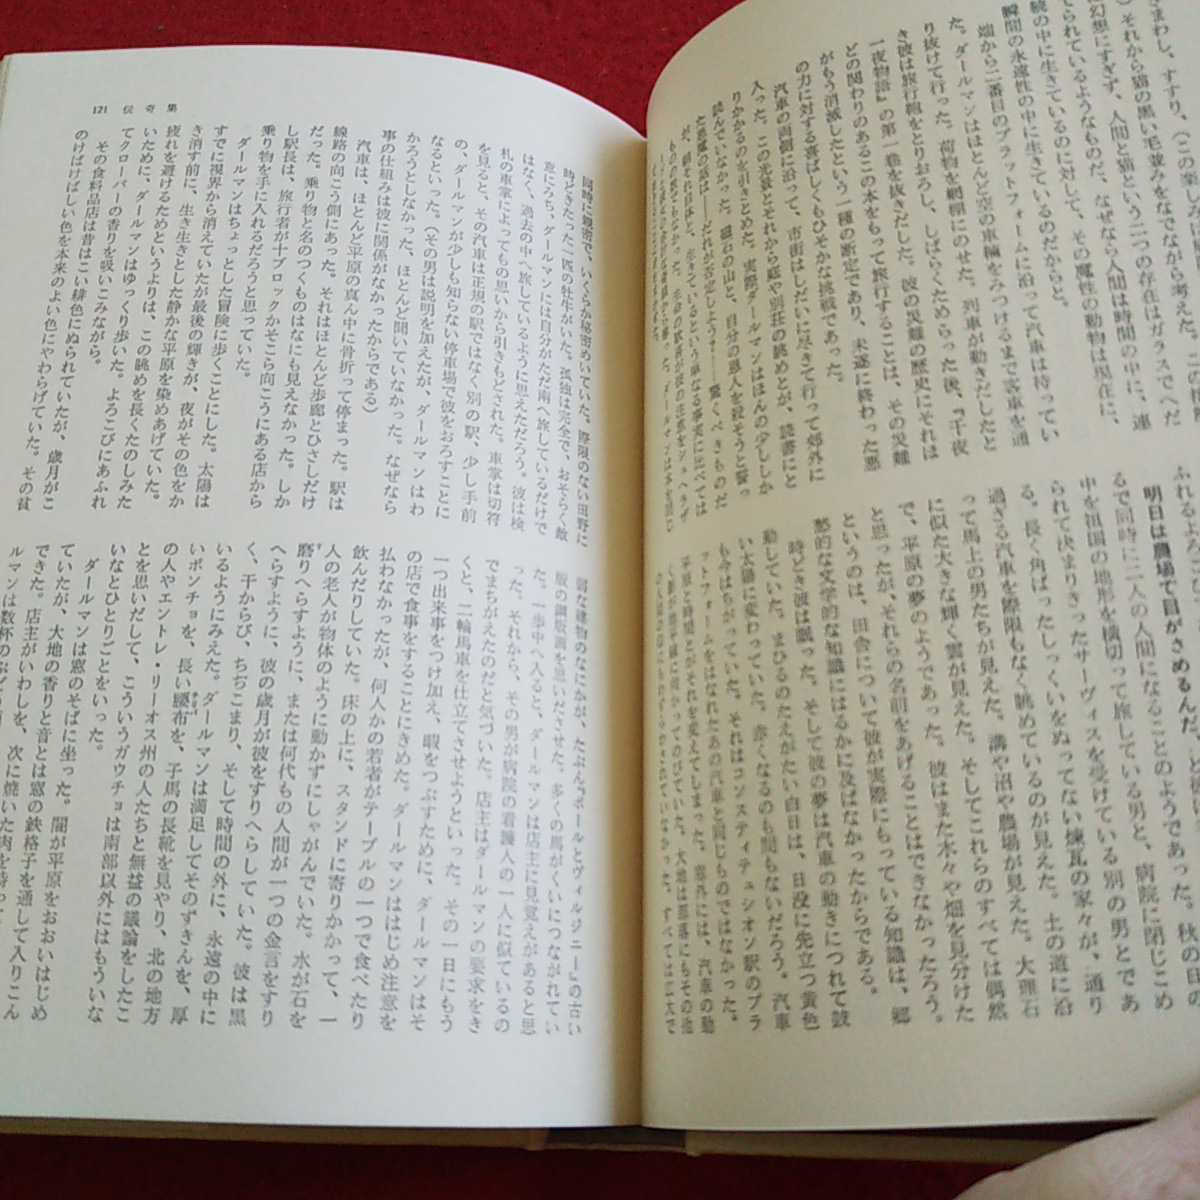 きまわし、すすり、(この楽しみは
)それから猫の黒い毛並みをなでながら考えた。この接
幻想にすぎず、人間と猫という二つの存在はガラスでへだ
てられているようなものだ、なぜなら人間は時間の中に、連
続の中に生きているのに対して、その魔性の動物は現在に、
瞬間の永遠性の中に生きているのだからと。
端から二番目のプラットフォームに沿って汽車は待ってい
た。ダールマンはほとんど空の車輛をみつけるまで客車を通
り抜けて行った。荷物を網棚にのせた。列車が動きだしたと
き彼は旅行鞄をとりおろし、しばらくためらった後、『千夜
一夜物語』の第一巻を抜きだした。彼の災難の歴史にそれほ
どの関わりのあるこの本をもって旅行することは、その災難
がもう消滅したという一種の断定であり、未遂に終わった悪
の力に対する喜ばしくもひそかな挑戦であった。
汽車の両側に沿って、市街はしだいに尽きて行って郊外に
入った。この光景とそれから庭や別荘の眺めとが、読書にと
りかかるのを引きとめた。実際ダールマンはほんの少ししか
読んでいなかった。磁石の山と、自分の恩人を殺そうと誓っ
た悪魔の話は——だれが否定しよう？——驚くべきものだ
が、朝それ自体と、生きているという単なる事実に比べては
ふれるよろこび
明日は農場で目がさめるんだ、と彼
るで同時に二人の人間になることのようであった。秋の日の
中を祖国の地形を横切って旅している男と、病院に閉じこめ
られて決まりきったサーヴィスを受けている別の男とであ
る。長く角ばったしっくいをぬってない煉瓦の家々が、通り
過ぎる汽車を際限もなく眺めているのが見えた。土の道に沿
って馬上の男たちが見えた。溝や沼や農場が見えた。大理石
に似た大きな輝く雲が見えた。そしてこれらのすべては偶然
で、平原の夢のようであった。彼はまた木々や畑を見分けた
と思ったが、それらの名前をあげることはできなかったろう。
というのは、田舎について彼が実際にもっている知識は、郷
愁的な文学的な知識にはるかに及ばなかったからである。
時どき彼は眠った。そして彼の夢は汽車の動きにつれて鼓
動していた。まひるのたえがたい白日は、日没に先立つ黄色
い太陽に変わっていた。赤くなるのも間もないだろう。汽車
も今はちがっていた。それはコンスティテュシオン駅のプラ
ットフォームをはなれたあの汽車と同じものではなかった。
平原と時間とがそれを変えてしまった。窓外には、汽車の動
121 伝奇集
同時に親密で、いくらか秘密めいていた。際限のない田野に
時どきたった一匹の牡牛がいた。孤独は完全で、おそらく敵
意にみち、ダールマンには自分がただ南へ旅しているだけで
はなく、過去の中へ旅しているように思えただろう。彼は検
札の車掌によってもの思いから引きもどされた。車掌は切符
を見ると、その汽車は正規の駅ではなく別の駅、少し手前
の、ダールマンが少しも知らない停車場で彼をおろすことに
なるといった。(その男は説明を加えたが、ダールマンはわ
かろうとしなかった、ほとんど聞いていなかった。なぜなら
事の仕組みは彼に関係がなかったからである)
汽車は、ほとんど平原の真ん中に骨折って停まった。駅は
線路の向こう側にあった。それはほとんど歩廊とひさしだけ
だった。乗り物と名のつくものはなにも見えなかった。しか
し駅長は、旅行者が十ブロックかそこら向こうにある店から
乗り物を手に入れるだろうと思っていた。
ダールマンはちょっとした冒険に歩くことにした。太陽は
すでに視界から消えていたが最後の輝きが、夜がその色をか
き消す前に、生き生きとした静かな平原を染めあげていた。
疲れを避けるためというよりは、この眺めを長くたのしみた
いために、ダールマンはゆっくり歩いた。よろこびにあふれ
てクローバーの香りを吸いこみながら。
その食料品店は昔はこい緋色にぬられていたが、歳月がこ
のけばけばしい色を本来のよい色にやわらげていた。その貧
弱な建物のなにかが、たぶん『ポールとヴィルジニー』の古い
版の鋼版画を思いださせた。多くの馬がくいにつながれてい
た。一歩中へ入ると、ダールマンは店主に見覚えがあると思
った。それから、その男が病院の看護人の一人に似ているの
でまちがえたのだと気づいた。店主はダールマンの要求をき
くと、二輪馬車を仕立てさせようといった。その一日にもう
一つ出来事をつけ加え、暇をつぶすために、ダールマンはそ
の店で食事をすることにきめた。ダールマンははじめ注意を
払わなかったが、何人かの若者がテーブルの一つで食べたり
飲んだりしていた。床の上に、スタンドに寄りかかって、一
人の老人が物体のように動かずにしゃがんでいた。水が石を
磨りへらすように、または何代もの人間が一つの金言をすり
へらすように、彼の歳月が彼をすりへらしていた。彼は黒
く、干からび、ちぢこまり、そして時間の外に、永遠の中に
いるようにみえた。ダールマンは満足してそのずきんを、厚
いポンチョを、長い腰布を、子馬の長靴を見やり、北の地方
の人やエントレ・リーオス州の人たちと無益の議論をしたこ
とを思いだして、こういうガウチョは南部以外にはもういな
いなとひとりごとをいった。
ダールマンは窓のそばに坐った。闇が平原をおおいはじめ
ていたが、大地の香りと音とは窓の鉄格子を通して入りこん
できた。店主がいわしを、次に焼いた肉を持って